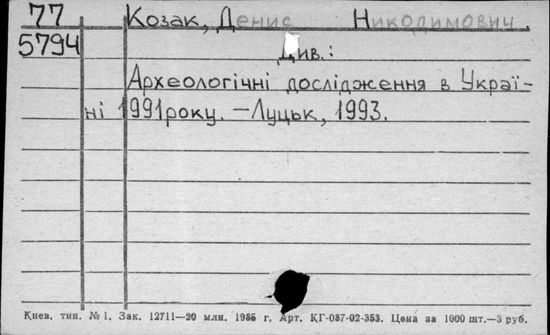 77 Козак, Денис Никодимович.
5794 Див.:
Археологічні дослідження в Украї-
ні 1991року. —Луцьк, 1993.
Киев. тип. №1. Зак. 12711—20 млн. 1985 г. Арт. КГ-087-02-353. Цена за 1000 шт.—3 руб.